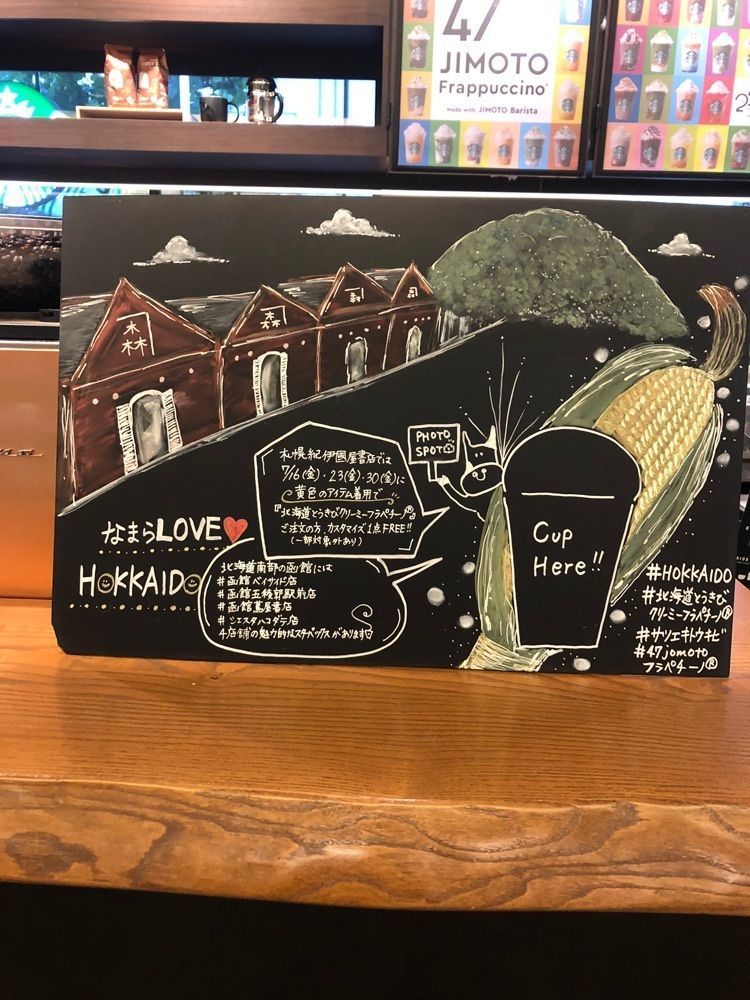 47
JIMOTO
Frappuccino®
Made with JIMOTO Barista
森
森
森
森
PHOTO
SPOT
札幌紀伊國屋書店では
7/16(金)・23(金)・30(金)に
黄色のアイテム着用で
『北海道とうきびクリーミーフラペチーノ®』
ご注文の方、カスタマイズ1点FREE!!
(一部対象外あり)
なまらLOVE
HOKKAIDO
北海道南部の函館には
#函館ベイサイド店
#函館五稜郭駅前店
#函館蔦屋書店
#シエスタハコダテ店
4店舗の魅力的なスターバックスがあります
Cup
Here!!
#HOKKAIDO
#北海道とうきび
クリーミーフラペチーノ®
#サツエキトウキビ
#47jomoto
フラペチーノ®